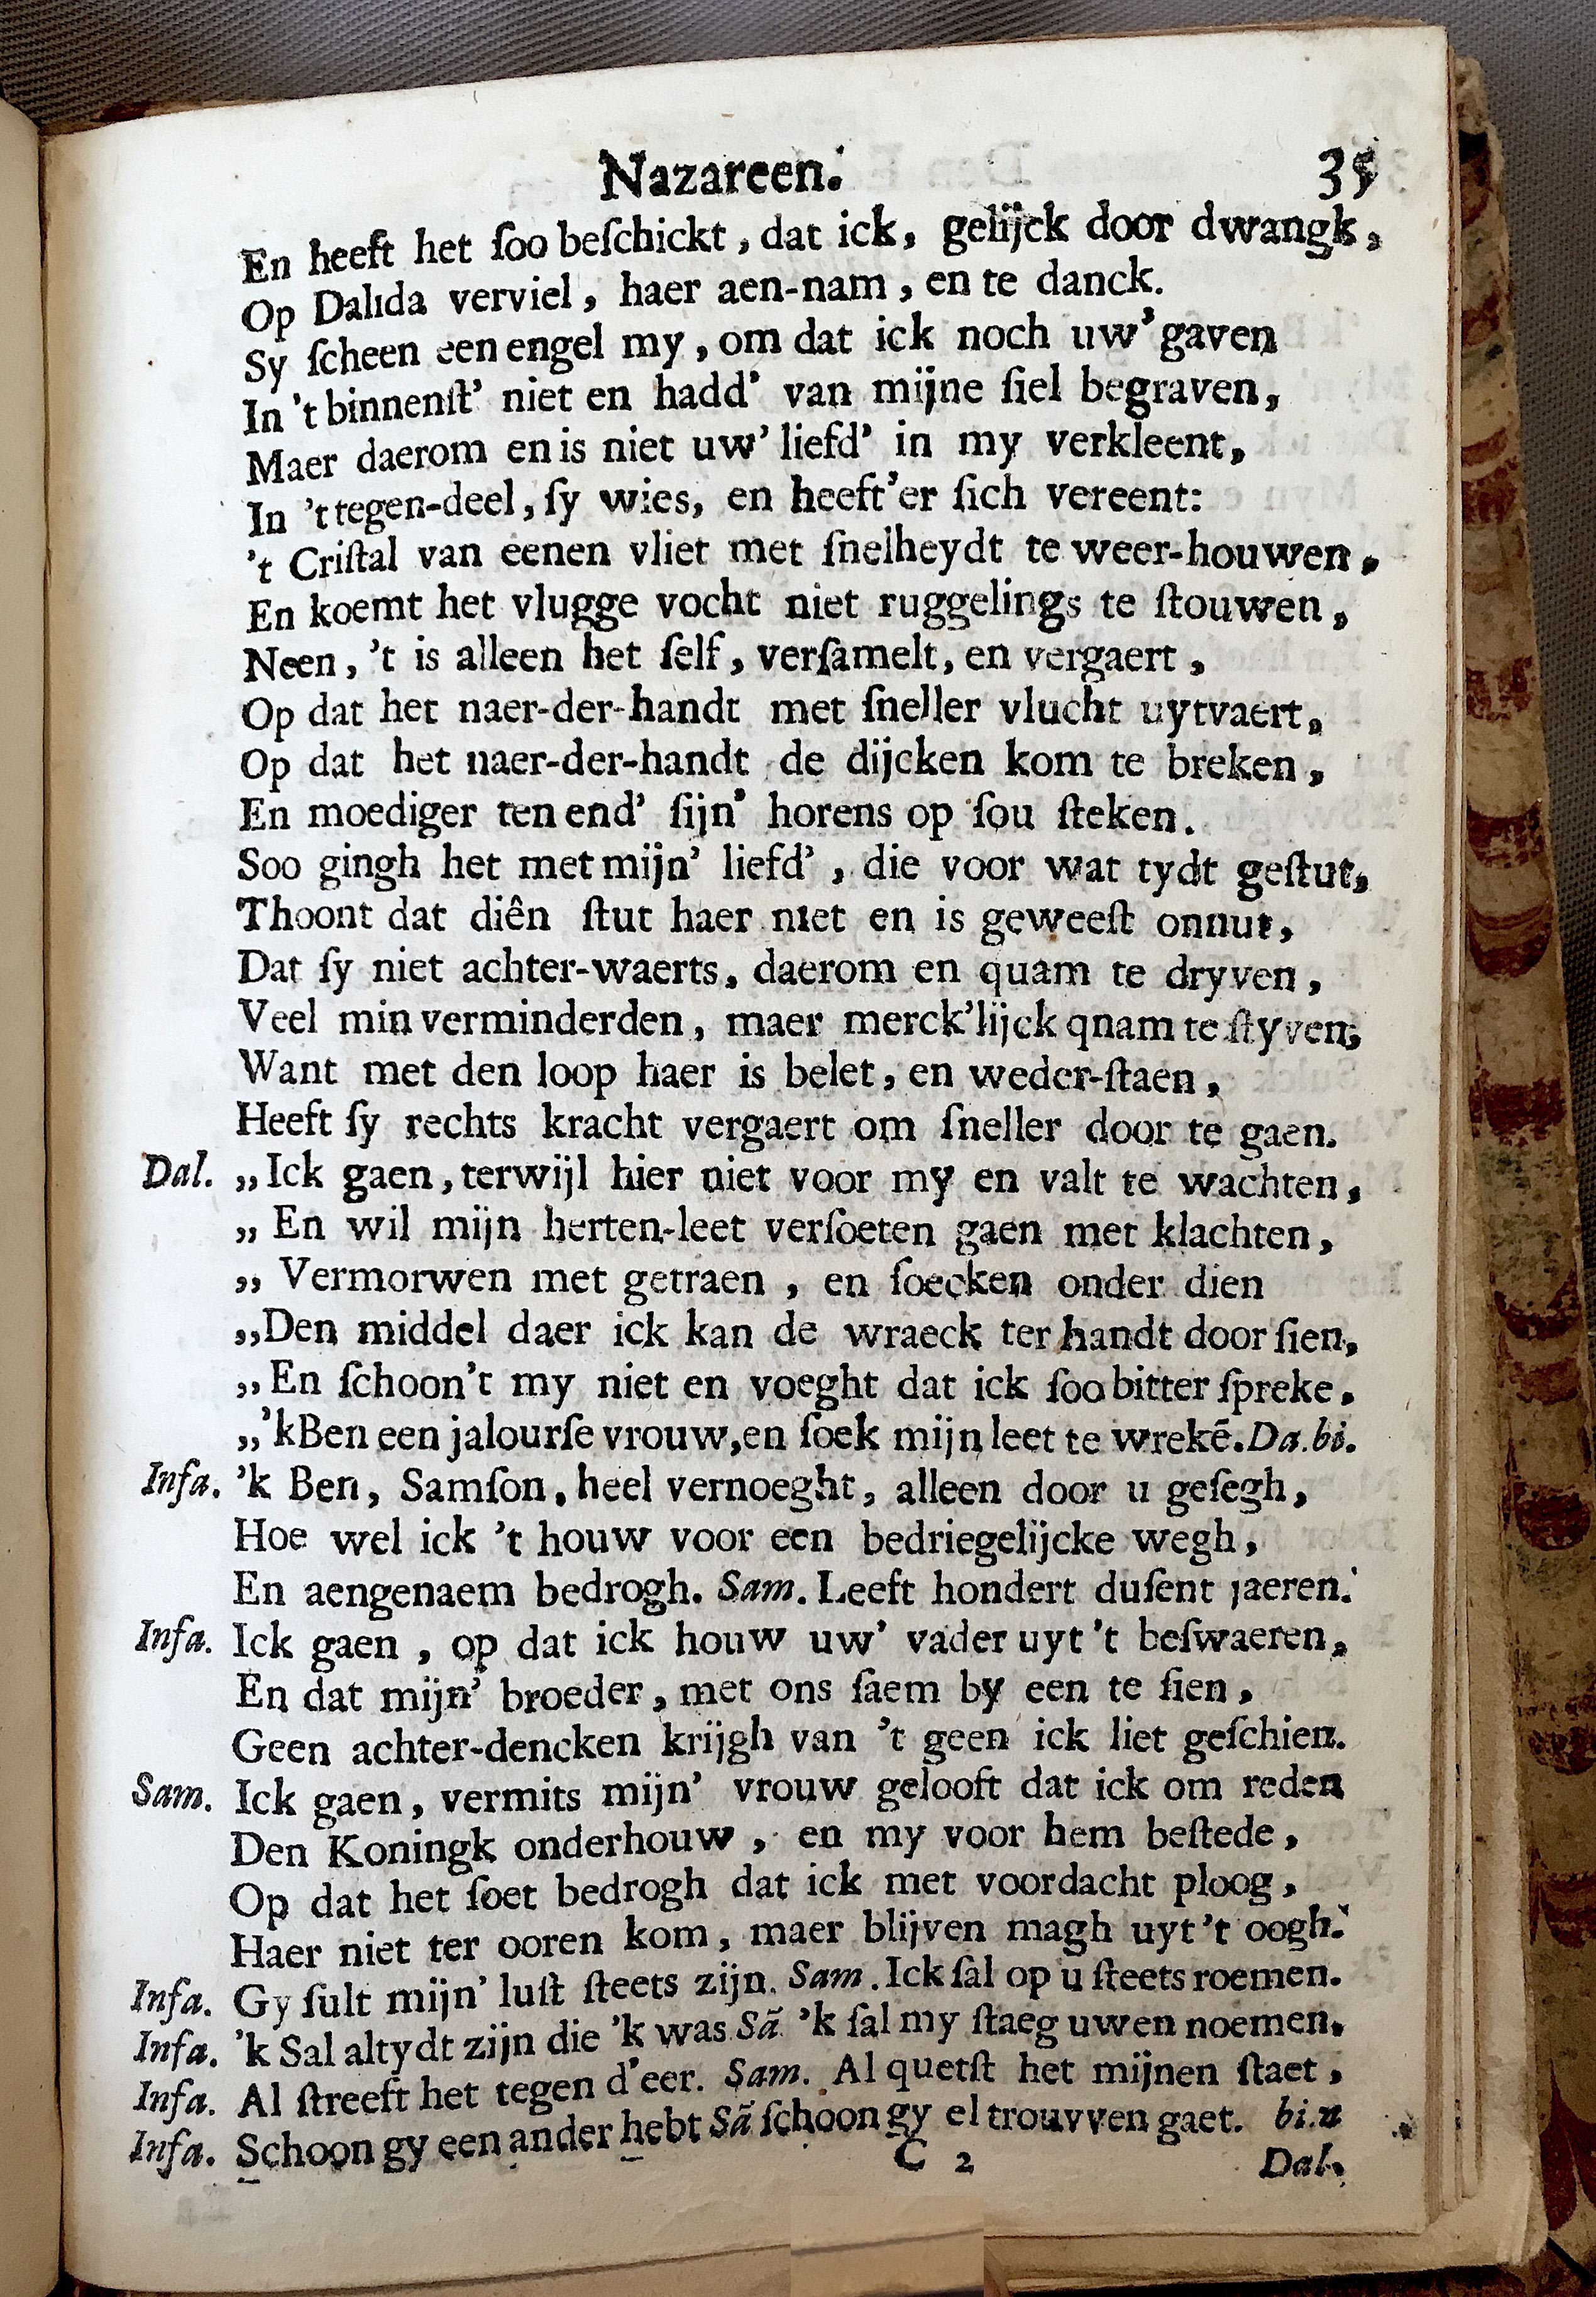 Nazareen. 35
En heeft het ſoo beſchickt, dat ick, gelijck door dwangk,
Op Dalida verviel, haer aen-nam, en te danck.
Sy ſcheen een engel my, om dat ick noch uw' gaven
In 't binnenſt' niet en hadd' van mijne ſiel begraven,
Maer daerom en is niet uw' liefd' in my verkleent,
In 't tegen-deel, ſy wies, en heeft'er ſich vereent:
't Criſtal van eenen vliet met ſnelheydt te weer-houwen,
En koemt het vlugge vocht niet ruggelings te ſtouwen,
Neen, 't is alleen het ſelf, verſamelt, en vergaert,
Op dat het naer-der-handt met ſneller vlucht uytvaert,
Op dat het naer-der-handt de dijcken kom te breken,
En moediger ten end' ſijn' horens op ſou ſteken.
Soo gingh het met mijn' liefd', die voor wat tydt geſtut,
Thoont dat diên ſtut haer niet en is geweeſt onnut,
Dat ſy niet achter-waerts, daerom en quam te dryven,
Veel min verminderden, maer merck'lijck qnam te ſtyven;
Want met den loop haer is belet, en weder-ſtaen,
Heeft ſy rechts kracht vergaert om ſneller door te gaen.
Dal. „Ick gaen, terwijl hier niet voor my en valt te wachten,
„ En wil mijn herten-leet verſoeten gaen met klachten,
„ Vermorwen met getraen, en ſoecken onder dien
„Den middel daer ick kan de wraeck ter handt door ſien,
„En ſchoon't my niet en voeght dat ick ſoo bitter ſpreke,
„'kBen een jalourſe vrouw,en ſoek mijn leet te wrekẽ. Da.bi.
Infa. 'k Ben, Samſon, heel vernoeght, alleen door u geſegh,
Hoe wel ick 't houw voor een bedriegelijcke wegh,
En aengenaem bedrogh. Sam. Leeft hondert duſent jaeren.
Infa. Ick gaen, op dat ick houw uw' vader uyt 't beſwaeren,
En dat mijn' broeder, met ons ſaem by een te ſien,
Geen achter-dencken krijgh van 't geen ick liet geſchien.
Sam. Ick gaen, vermits mijn' vrouw gelooft dat ick om reden
Den Koningk onderhouw, en my voor hem beſtede,
Op dat het ſoet bedrogh dat ick met voordacht ploog,
Haer niet ter ooren kom, maer blijven magh uyt 't oogh.
Infa. Gy ſult mijn' luſt ſteets zijn. Sam. Ick ſal op u ſteets roemen.
Infa. 'k Sal altydt zijn die 'k was Sã 'k ſal my ſtaeg uwen noemen.
Infa. Al ſtreeft het tegen d'eer. Sam. Al quetſt het mijnen ſtaet,
Infa. Schoon gy een ander hebt Sã ſchoon gy el trouvven gaet. bi.n
C 2 Dal.